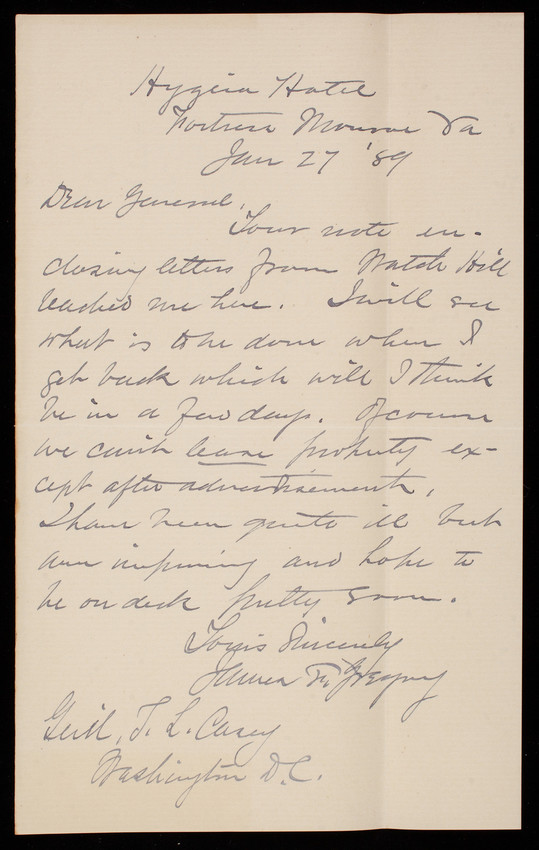 Hygeia Hotel
Fortress Monroe Va
Jan 27 '89
Dear General,
Your note en-
closing letters from Watch Hill
reached me here. I will see
what is to be done when I
get back which will I think
be in a few days. Of course
we can't lease property ex-
cept after advertisement.
I have been quite ill but
am improving and hope to
be on deck pretty soon.
Yours Sincerely
James Gregory
Genl. T. L. Casey
Washington D.C.